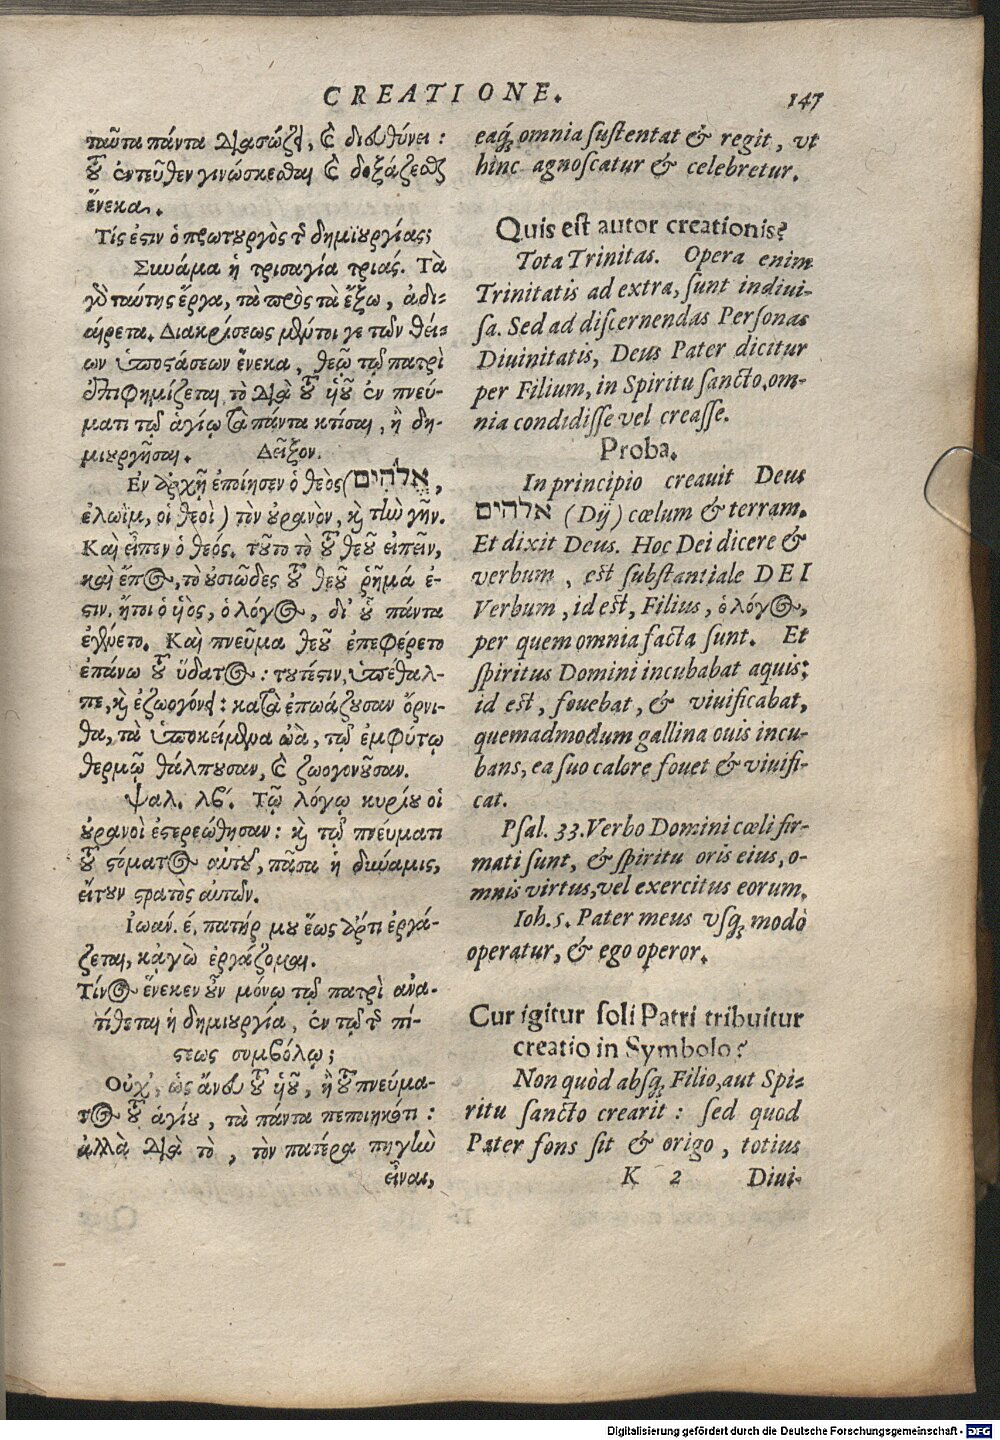 CREATIONE. 147
ταῦτα πάντα διασώζει, καὶ διευθύνει:
τοῦ ἐντεῦθεν γινώσκεσθαι καὶ δοξάζεσθαι
ἕνεκα.
Τίς ἐστιν ὁ πρωτουργὸς τῆς δημιουργίας;
Σινάμα ἡ τρισαγία τριάς. Τὰ
γὸ ταύτης ἔργα, τὰ πρὸς τὰ ἔξω, ἀδι-
αίρετα. Διακρίσεως μέντοι γε τῶν θεί-
ων ὑποστάσεων ἕνεκα, θεῷ τῷ πατρὶ
ἐπιφημίζεται τὸ διὰ τοῦ υἱοῦ ἐν πνεύ-
ματι τῷ ἁγίῳ τὰ πάντα κτίσαι, ἢ δη-
μιουργῆσαι. Δεῖξον.
Εν ἀρχῇ ἐποίησεν ὁ θεὸς (אֱלֹהִים,
ἐλωῒμ, οἱ θεοὶ) τὸν οὐρανὸν, καὶ τὴν γῆν.
Καὶ εἶπεν ὁ θεός. τοῦτο τὸ τοῦ θεοῦ εἰπεῖν,
καὶ ἔπος, τὸ οὐσιῶδες τοῦ θεοῦ ῥῆμά ἐ-
στιν, ἤτοι ὁ υἱὸς, ὁ λόγος, δι' οὗ πάντα
ἐγένετο. Καὶ πνεῦμα θεοῦ ἐπεφέρετο
ἐπάνω τοῦ ὕδατος: τουτέστιν, ὑπέθαλ-
πε, καὶ ἐζωογόνει: καθὰ ἐπωάζουσαν ὄρνι-
θα, τὰ ὑποκείμενα ὠὰ, τῷ ἐμφύτῳ
θερμῷ θάλπουσαν, καὶ ζωογονοῦσαν.
Ψαλ. λβ. Τῷ λόγῳ κυρίου οἱ
οὐρανοὶ ἐστερεώθησαν: καὶ τῷ πνεύματι
τοῦ στόματος αὐτοῦ, πᾶσα ἡ δύναμις,
εἴτουν στρατὸς αὐτῶν.
Ιωαν. έ. πατήρ μου ἕως ἄρτι ἐργά-
ζεται, κᾀγὼ ἐργάζομαι.
Τίνος ἕνεκεν οὖν μόνῳ τῷ πατρὶ ἀνα-
τίθεται ἡ δημιουργία, ἐν τῷ τῆς πί-
στεως συμβόλῳ;
Οὐχ', ὡς ἄνευ τοῦ υἱοῦ, ἢ τοῦ πνεύμα-
τος τοῦ ἁγίου, τὰ πάντα πεποιηκότι:
ἀλλὰ διὰ τὸ, τὸν πατέρα πηγὴν
εἶναι,
eaq́ꝫ omnia sustentat & regit, vt
hinc agnoscatur & celebretur.
Quis est autor creationis?
Tota Trinitas. Opera enim
Trinitatis ad extra, sunt indiui-
sa. Sed ad discernendas Personas
Diuinitatis, Deus Pater dicitur
per Filium, in Spiritu sancto, om-
nia condidisse vel creasse.
Proba.
In principio creauit Deus
אלהים (Dij) cœlum & terram.
Et dixit Deus. Hoc Dei dicere &
verbum, est substantiale DEI
Verbum, id est, Filius, ὁ λόγος,
per quem omnia facta sunt. Et
spiritus Domini incubabat aquis:
id est, fouebat, & viuificabat,
quemadmodum gallina ouis incu-
bans, ea suo calore fouet & viuifi-
cat.
Psal. 33. Verbo Domini cœli fir-
mati sunt, & spiritu oris eius, o-
mnis virtus, vel exercitus eorum.
Ioh. 5. Pater meus vsq́ꝫ modò
operatur, & ego operor.
Cur igitur soli Patri tribuitur
creatio in Symbolo?
Non quòd absq́ꝫ Filio, aut Spi-
ritu sancto crearit: sed quod
Pater fons sit & origo, totius
K 2 Diui-
Digitalisierung gefördert durch die Deutsche Forschungsgemeinschaft - DFG